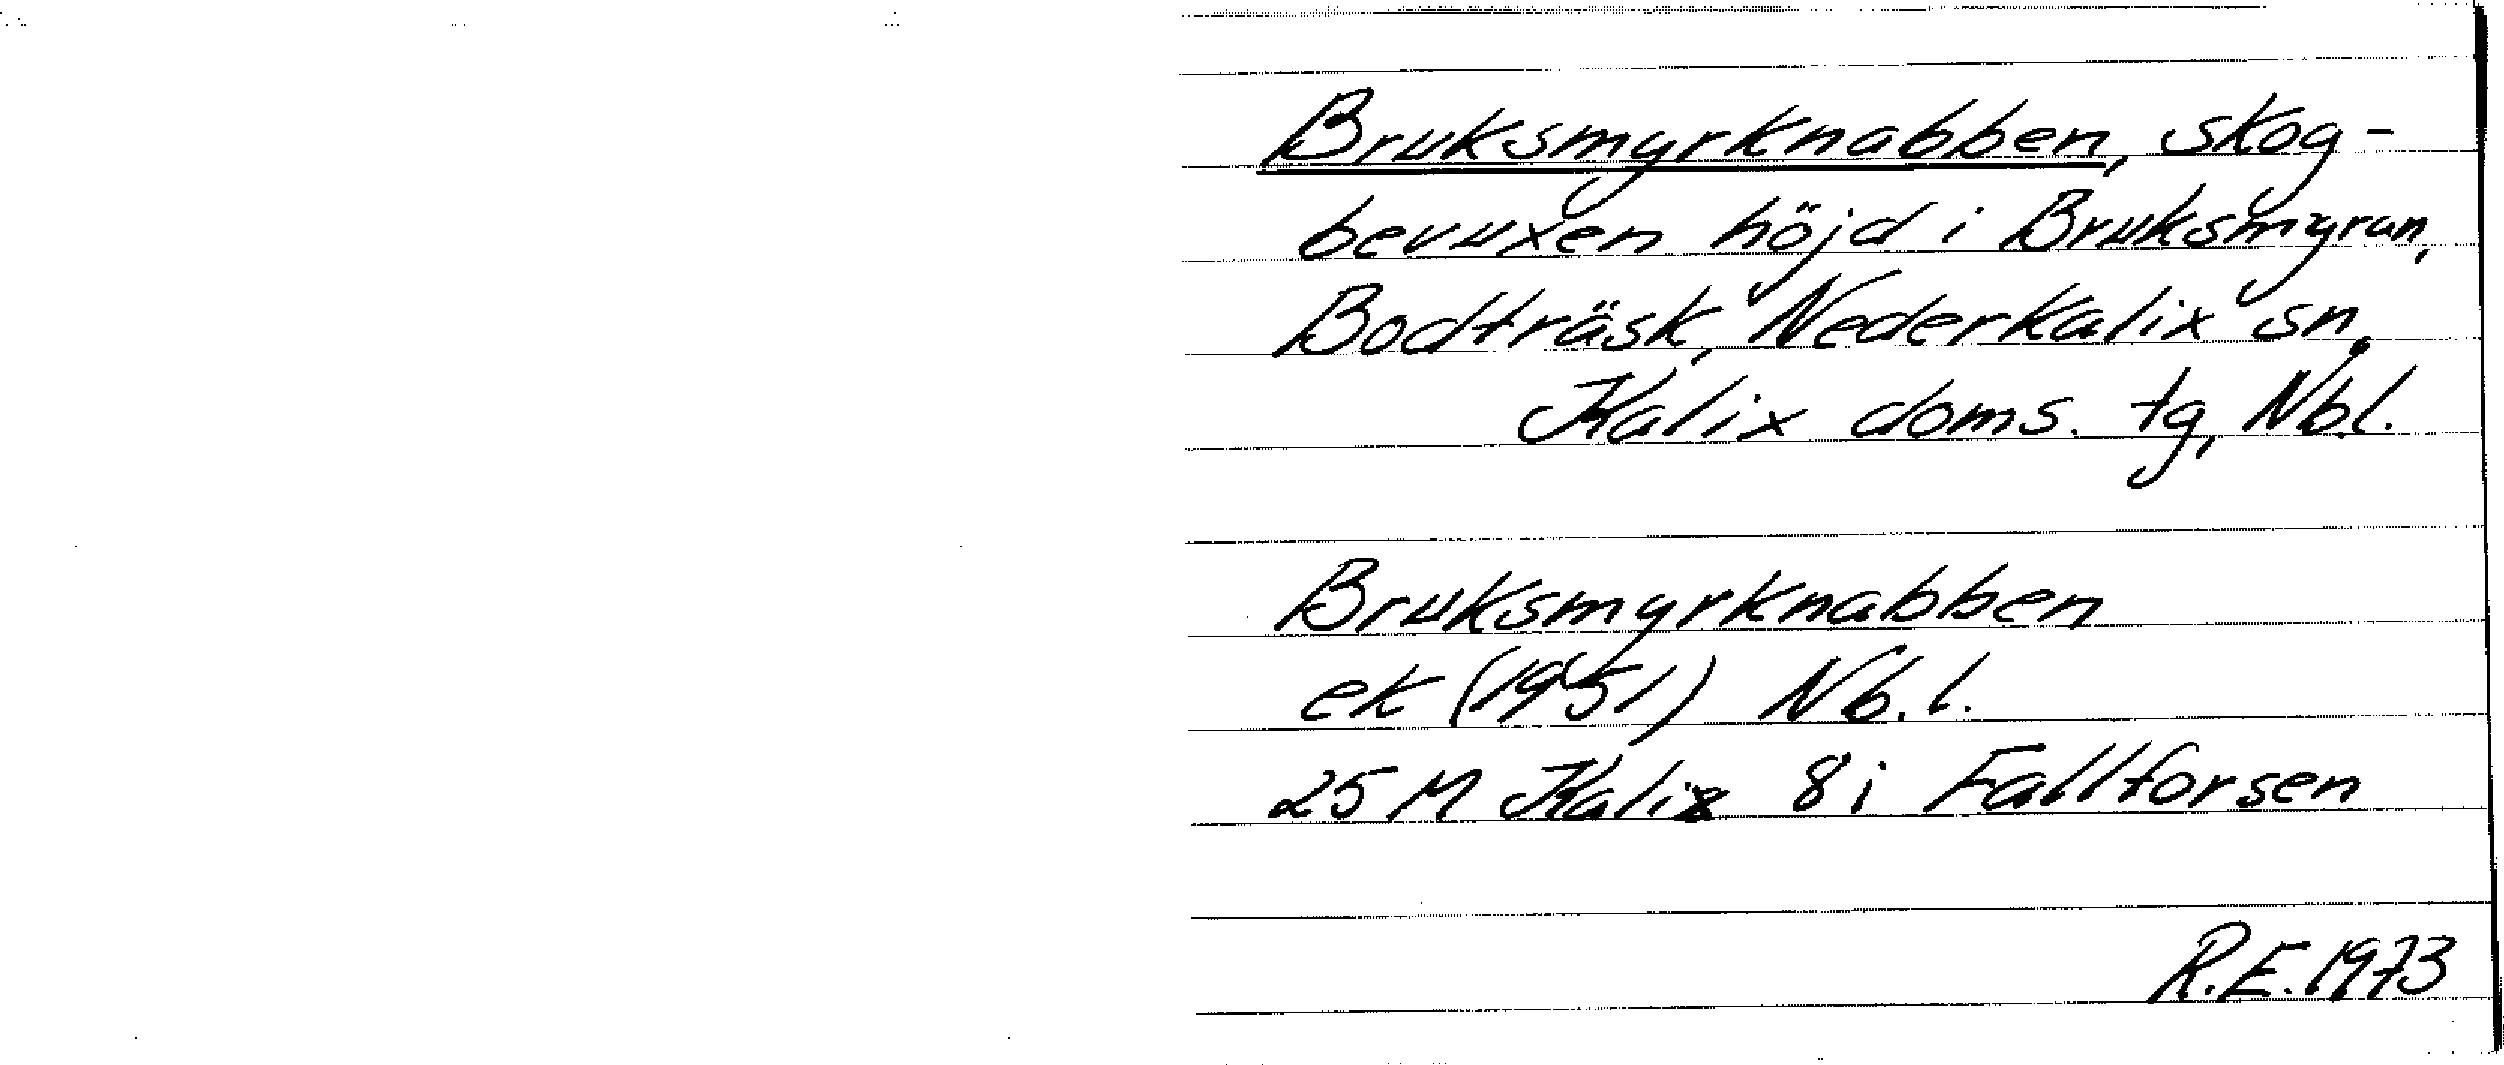 Bruksmyrknabben, skog-
bevuxen höjd i Bruksmyran,
Bodträsk, Nederkalix sn,
Kalix doms. tg, Nb.l.
Bruksmyrknabben
ek (1951) Nb.l.
25 M Kalix 8i Fallforsen
R.E. 1973